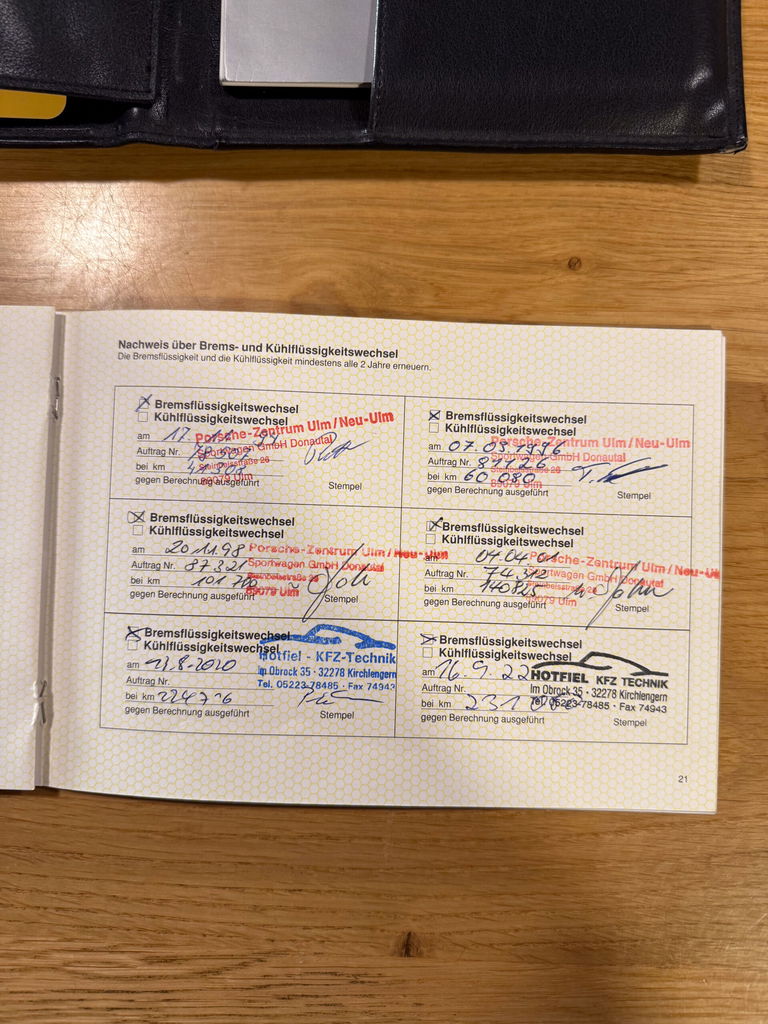 Nachweis über Brems- und Kühlflüssigkeitswechsel
Die Bremsflüssigkeit und die Kühlflüssigkeit mindestens alle 2 Jahre erneuern.
Bremsflüssigkeitswechsel
Kühlflüssigkeitswechsel
am 17.
Auftrag Nr.
bei km
gegen Berechnung ausgeführt
Porsche-Zentrum Ulm/Neu-Ulm
Sportwagen GmbH Donautal
89079 Ulm
Stempel
Bremsflüssigkeitswechsel
Kühlflüssigkeitswechsel
am 07.09.1996
Auftrag Nr.
bei km 60.080
gegen Berechnung ausgeführt
Porsche-Zentrum Ulm/Neu-Ulm
Sportwagen GmbH Donautal
89079 Ulm
Stempel
Bremsflüssigkeitswechsel
Kühlflüssigkeitswechsel
am 20 11.98
Auftrag Nr. 87321
bei km
gegen Berechnung ausgeführt
Porsche-Zentrum Ulm/Neu-Ulm
Sportwagen GmbH Donautal
89079 Ulm
Stempel
Bremsflüssigkeitswechsel
Kühlflüssigkeitswechsel
am 04.04.01
Auftrag Nr. 74312
bei km 140825
gegen Berechnung ausgeführt
Porsche-Zentrum Ulm/Neu-Ulm
Sportwagen GmbH Donautal
89079 Ulm
Stempel
Bremsflüssigkeitswechsel
Kühlflüssigkeitswechsel
am
Auftrag Nr.
bei km
gegen Berechnung ausgeführt
Hotfiel - KFZ-Technik
Im Obrock 35 · 32278 Kirchlengern
Tel. 05223-78485 · Fax 74943
Stempel
Bremsflüssigkeitswechsel
Kühlflüssigkeitswechsel
am 16.9.22
Auftrag Nr.
bei km 231 000
gegen Berechnung ausgeführt
HOTFIEL KFZ TECHNIK
Im Obrock 35 · 32278 Kirchlengern
Tel. 05223-78485 · Fax 74943
Stempel
21